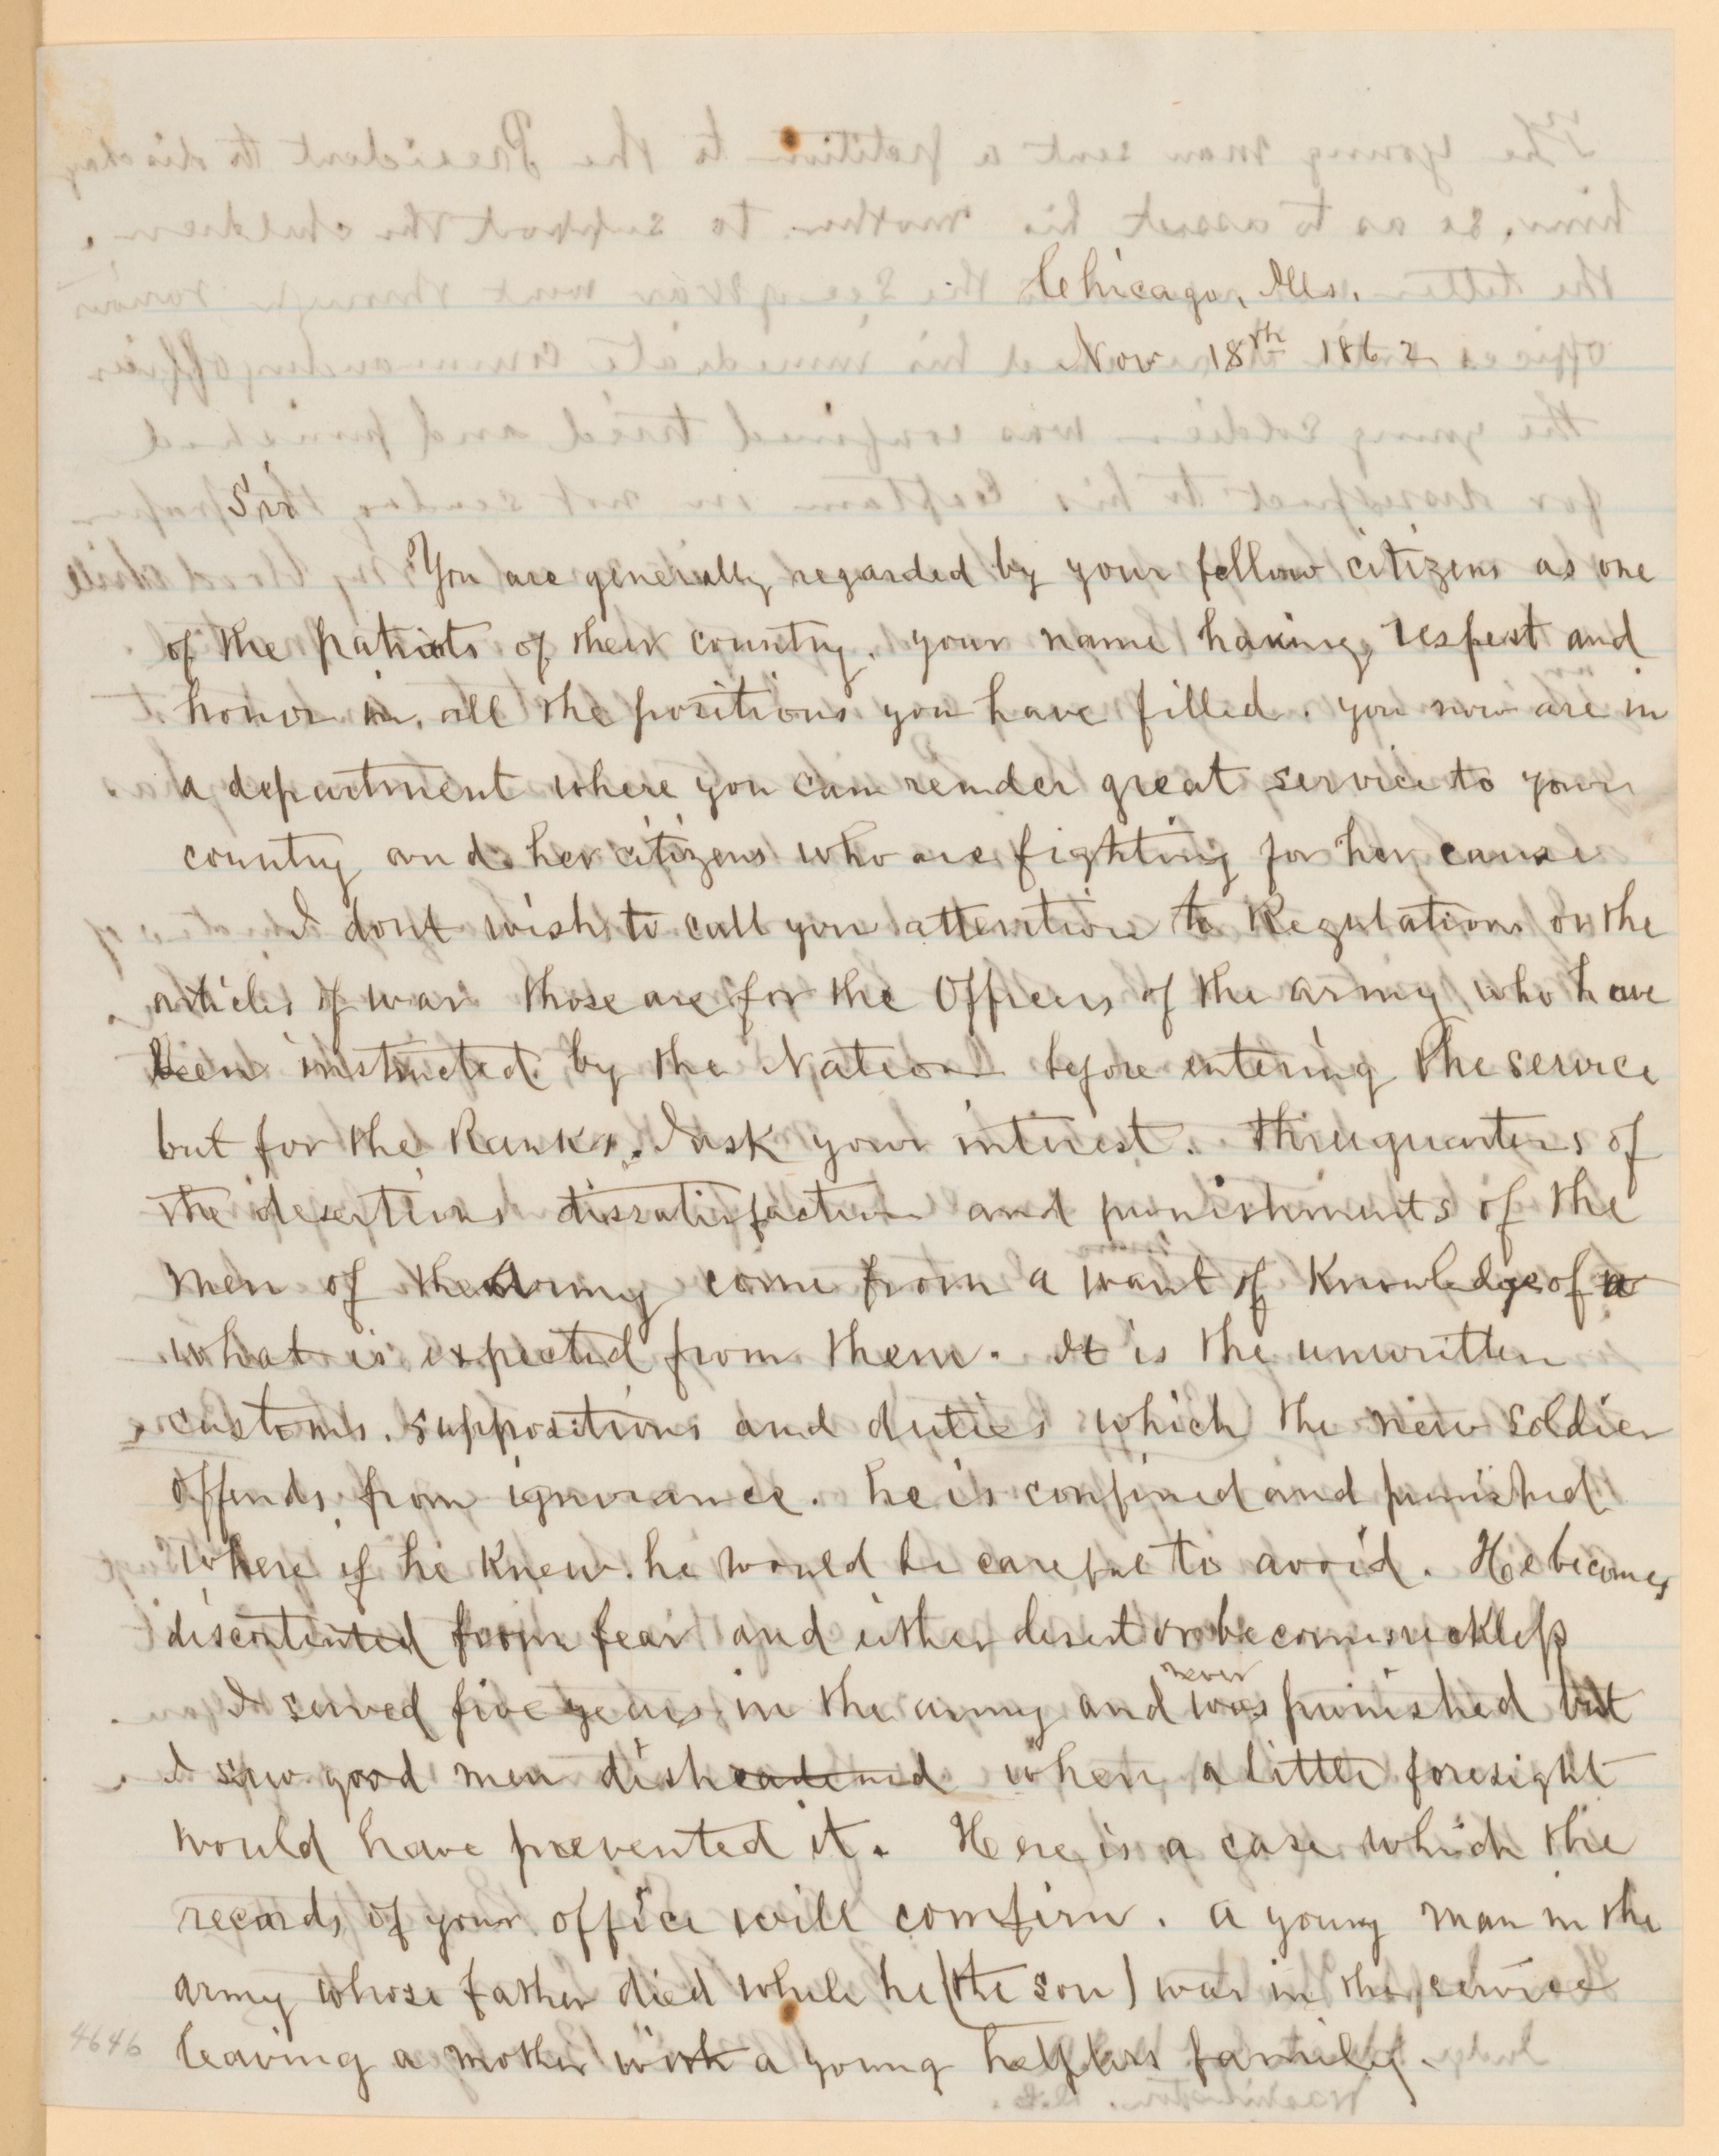 Chicago, Ills.
Nov 18th 1862
Sir
You are generally regarded by your fellow citizens as one
of the patriots of their country. your name having respect and
honor in all the positions you have filled. you now are in
a department where you can render great service to your
country and her citizens who are fighting for her cause
I dont wish to call you attention to Regulations or the
articles of war those are for the Officers of the army who have
been instructed by the Nation before entering the service
but for the Ranks. I ask your interest. Threequarters of
the desertions dissatisfaction and punishments of the
men of the Army come from a want of Knowledge of a
what is expected from them. It is the unwritten
customs. suppositions and duties which the new soldier
offends from ignorance. he is confined and punished
where if he knew he would be careful to avoid. He becomes
discontented from fear and either desert or becomes reckless
I served five years in the army and never was punished but
I saw good men disheadened when a little foresight
would have prevented it. Here is a case which the
records of your office will comfirm. a young man in the
army whose father died while he (the son) was in the service
leaving a mother with a young helpless family.
4646